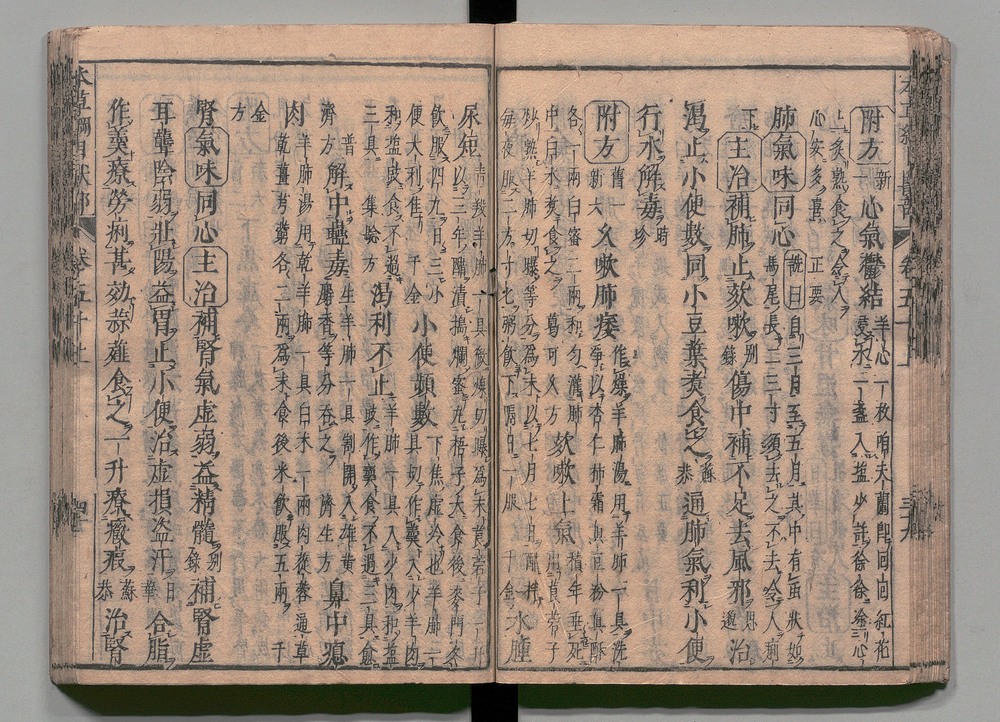 附方新一心氣鬱結羊心一枚咱夫蘭即回回紅花
浸水一盞入鹽少許徐徐塗心
上炙熟食之令人
心安多喜正要
肺氣味同心詵曰自三月至五月其中有蟲狀如
馬尾長二三寸須去之不去令人痢
下主治補肺止欬嗽別錄傷中補不足去風邪思邈治
渴止小便數同小豆葉煮食之蘇恭通肺氣利小便
行水解毒時珍
附方舊一新六久嗽肺痿作燥羊肺湯用羊肺一具洗
淨以杏仁柿霜真豆粉真酥
各一兩白蜜二兩和勻灌肺
中白水煮食之葛可久方欬嗽上氣積年垂死
用莨菪子
炒熟羊肺切曝等分為末以七月七日醋拌
每夜服二方寸匕粥飲下隔日一服千金水腫
尿短青羖羊肺一具微煠切曝為末莨菪子一升
以三年醋漬搗爛蜜丸梧子大食後麥門冬
飲服四丸日三小
便大利佳千金小便頻數下焦虛冷也羊肺一
具切作羹入少羊肉
和鹽豉食不過
三具集驗方渴利不止羊肺一具入少肉和鹽
豉作羹食不過三具愈
普
濟方解中蠱毒生羊肺一具割開入雄黃
麝香等分吞之濟生方鼻中瘜
肉羊肺湯用乾羊肺一具白朮一兩肉蓯蓉通草
乾薑芎藭各二兩為末食後米飲服五兩千
金
方
腎氣味同心主治補腎氣虛弱益精髓別錄補腎虛
耳聾陰弱壯陽益胃止小便治虛損盜汗日華合脂
作羹療勞痢甚效蒜薤食之一升療癥瘕蘇恭治腎